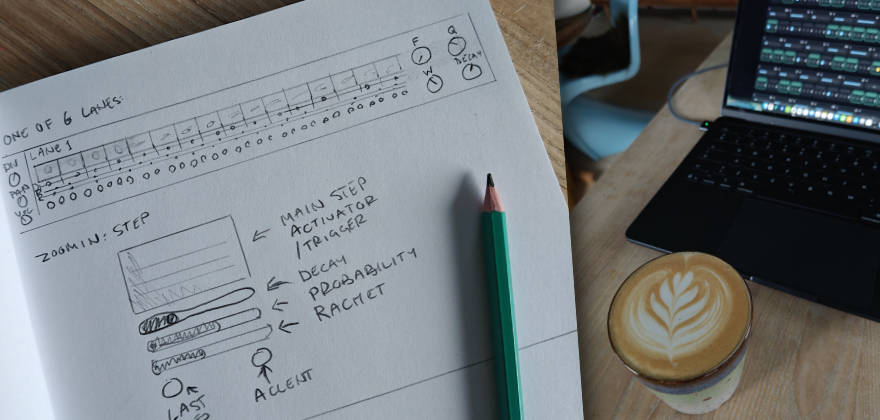 ONE OF 6 LANES:
LANE 1
F
Q
W
DECAY
ZOOM IN: STEP
MAIN STEP
ACTIVATOR
/TRIGGER
DECAY
PROBABILITY
RACHET
ACCENT
LAST